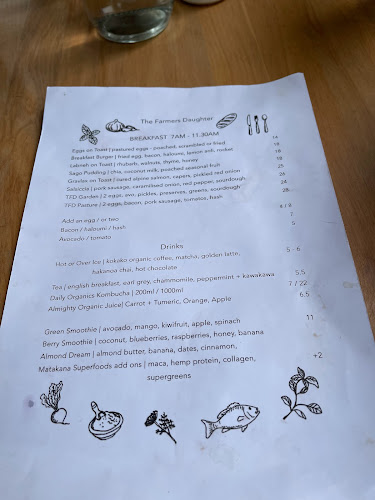 The Farmers Daughter
BREAKFAST 7AM - 11.30AM
Eggs on Toast | pastured eggs - poached, scrambled or fried 14
Breakfast Burger | fried egg, bacon, haloumi, lemon aioli, rocket 18
Labneh on Toast | rhubarb, walnuts, thyme, honey 18
Sago Pudding | chia, coconut milk, poached seasonal fruit 18
Gravlax on Toast | cured alpine salmon, capers, pickled red onion 25
Salsiccia | pork sausage, caramelised onion, red pepper, sourdough 24
TFD Garden | 2 eggs, avo, pickles, preserves, greens, sourdough 24
TFD Pasture | 2 eggs, bacon, pork sausage, tomatoes, hash 28
Add an egg / or two 4 / 8
Bacon / haloumi / hash 7
Avocado / tomato 5
Drinks
Hot or Over Ice | kokako organic coffee, matcha, golden latte, 5 - 6
hakanoa chai, hot chocolate
Tea | english breakfast, earl grey, chammomile, peppermint + kawakawa 5.5
Daily Organics Kombucha | 200ml / 1000ml 7 / 22
Almighty Organic Juice| Carrot + Tumeric, Orange, Apple 6.5
Green Smoothie | avocado, mango, kiwifruit, apple, spinach 11
Berry Smoothie | coconut, blueberries, raspberries, honey, banana
Almond Dream | almond butter, banana, dates, cinnamon,
Matakana Superfoods add ons | maca, hemp protein, collagen, +2
supergreens